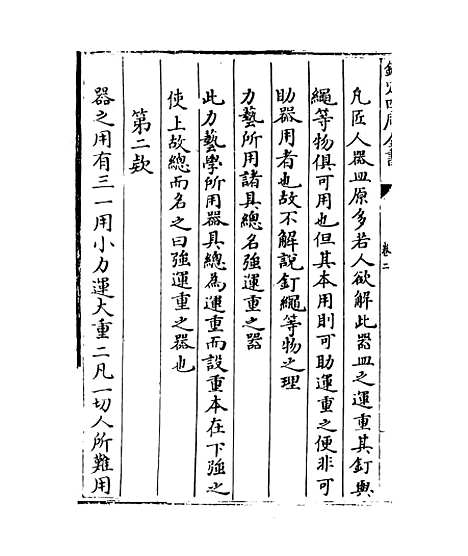 欽定四庫全書
卷二
凡匠人器皿原多若人欲解此器皿之運重其釘與
繩等物俱可用也但其本用則可助運重之便非可
助器用者也故不解說釘繩等物之理
力藝所用諸具總名強運重之器
此力藝學所用器具總為運重而設重本在下強之
使上故總而名之曰強運重之器也
第二款
器之用有三一用小力運大重二凡一切人所難用